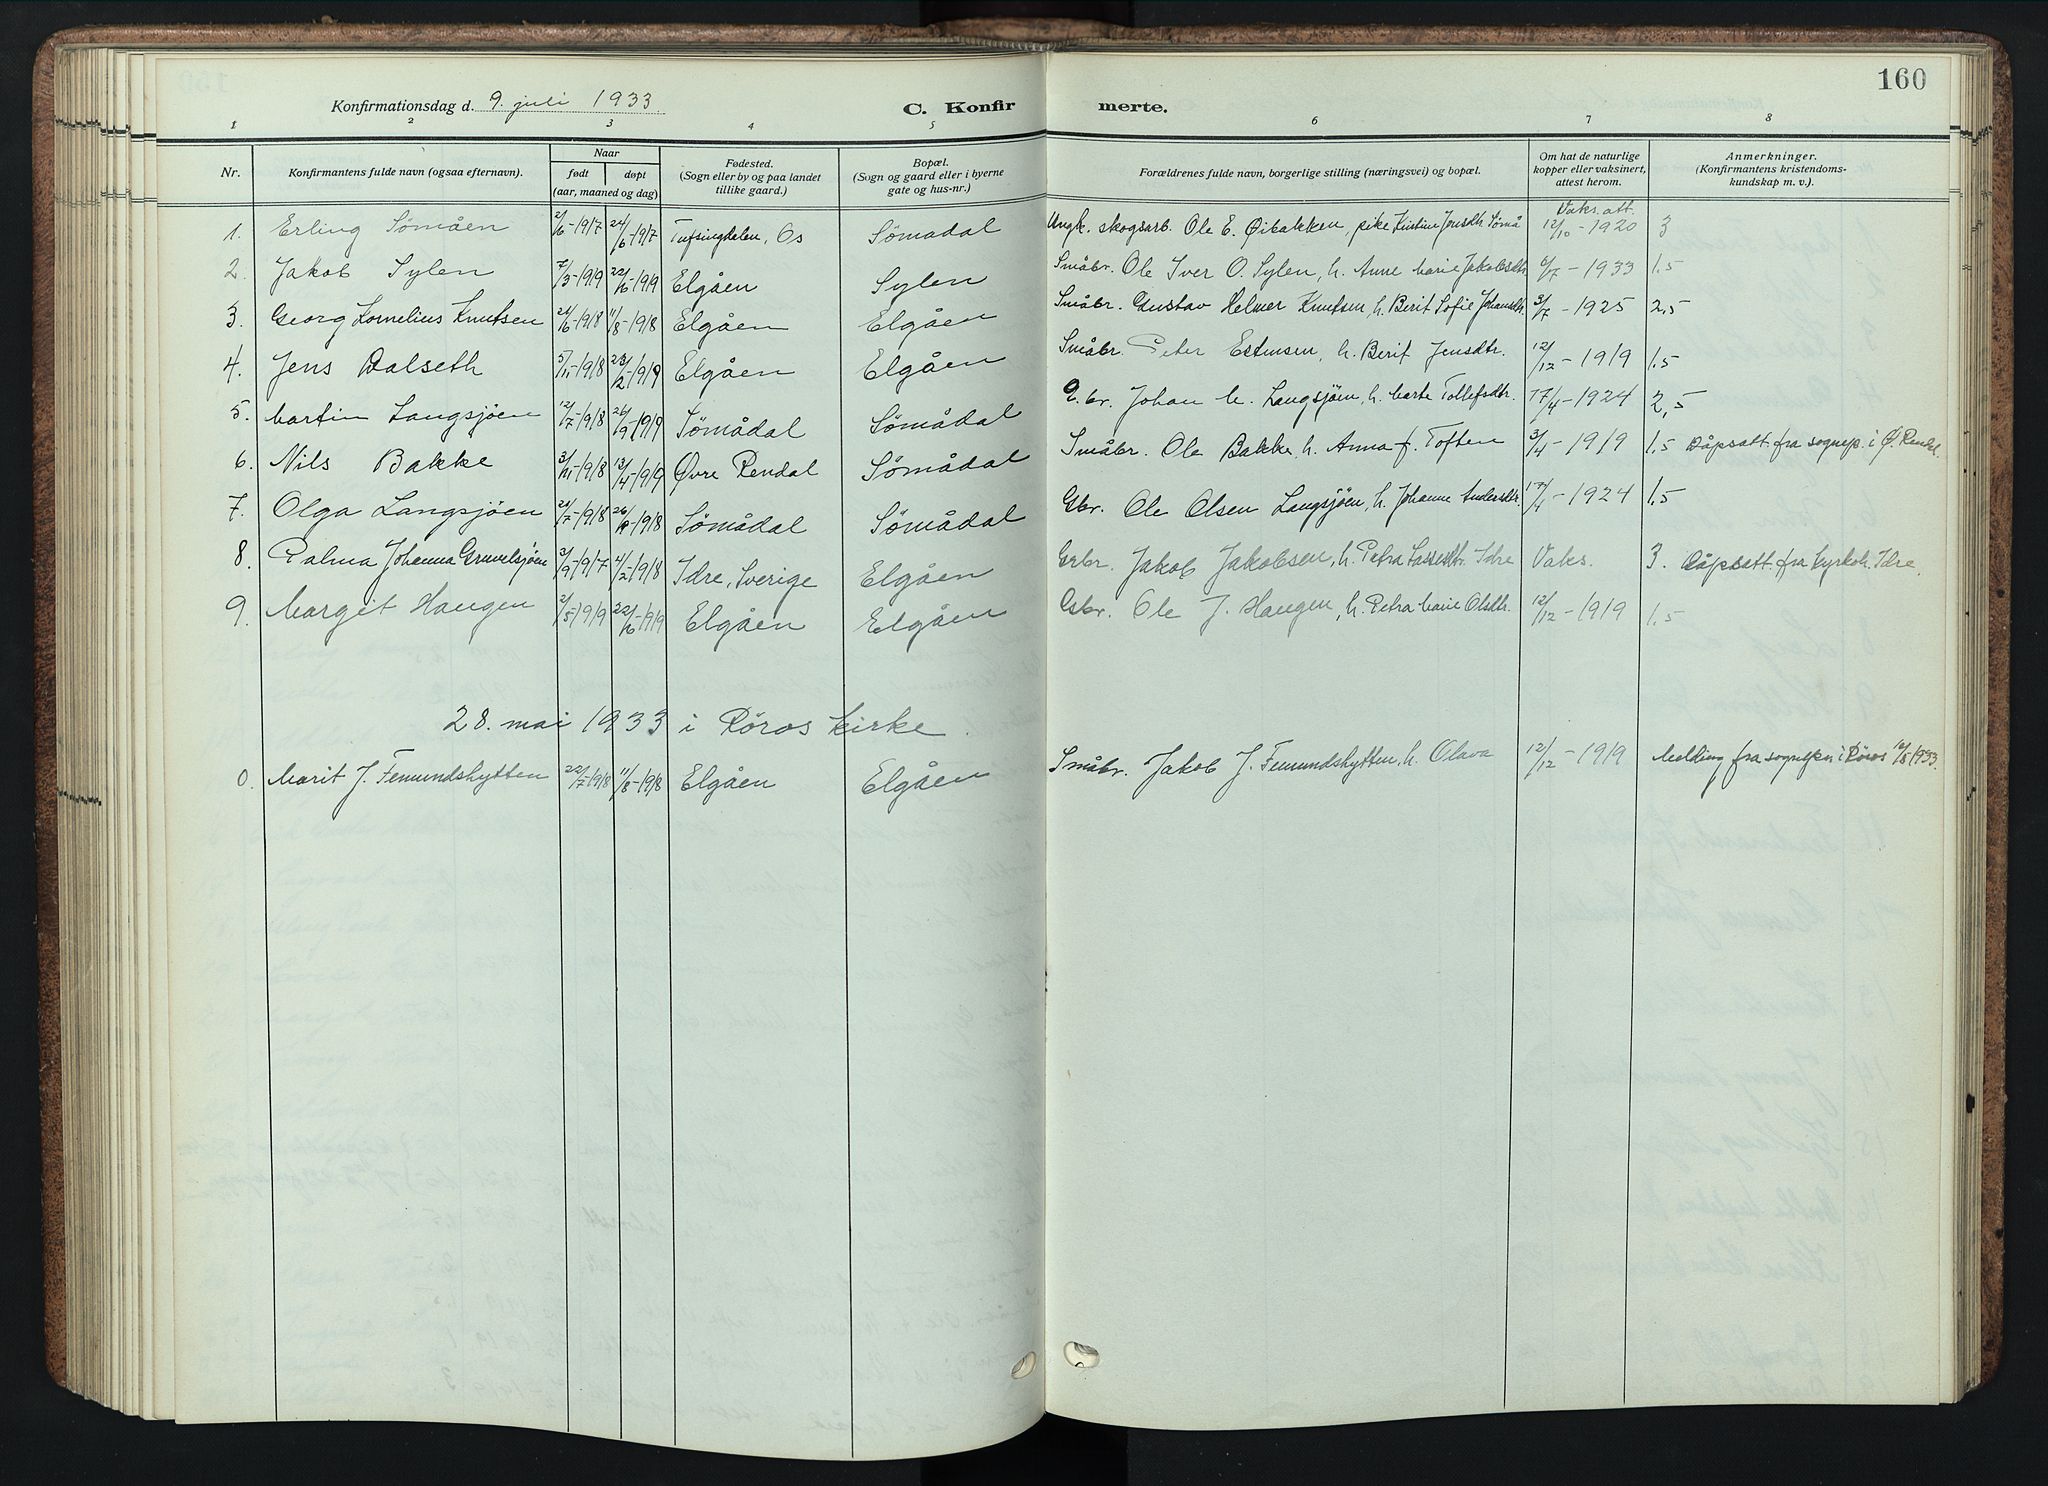 160
Konfirmationsdag d. 9. juli 1933 C. Konfir merte.
1 2 3 4 5 6 7 8
Nr. Konfirmantens fulde navn (ogsaa efternavn). Naar født døpt (aar, maaned og dag) Fødested. (Sogn eller by og paa landet tillike gaard.) Bopæl. (Sogn og gaard eller i byerne gate og hus-nr.) Forældrenes fulde navn, borgerlige stilling (næringsvei) og bopæl. Om hat de naturlige kopper eller vaksinert, attest herom. Anmerkninger. (Konfirmantens kristendoms-kundskap m. v.)
Vaks. att.
1. Erling Sömåen 2/6-1917 24/6-1917 Tufsingdalen, Os Sömadal Ungk. skogsarb. Ole E. Öibakken, pike Kristine Jensdtr. Sömå 12/10-1920 3
2. Jakob Sylen 7/3-1919 22/6-1919 Elgåen Sylen Småbr. Ole Iver O. Sylen, h. Anne Marie Jakobsdtr. 6/7-1933 1,5
3. Georg Kornelius Knutsen 24/6-1918 11/8-1918 Elgåen Elgåen Småbr. Gustav Helmer Knutsen, h. Berit Sofie Johansdtr. 3/7-1925 2,5
4. Jens Dalseth 5/11-1918 23/2-1919 Elgåen Elgåen Småbr. Peter Estensen, h. Berit Jensdtr. 12/12-1919 1,5
5. Martin Langsjöen 12/7-1918 26/9-1919 Sömådal Sömådal G.br. Johan M. Langsjöen, h. Marte Tollefsdtr. 17/4-1924 2,5
6. Nils Bakke 3/11-1918 13/4-1919 Øvre Rendal Sömådal Småbr. Ole Bakke, h. Anna f. Toften 3/4-1919 1,5 Dåpsatt. fra sognep. i Ø. Rendal.
7. Olga Langsjöen 24/7-1918 26/-1918 Sömådal Sömådal Gbr. Ole Olsen Langsjöen, h. Johanne Andersdtr. 17/4-1924 1,5
8. Palma Johanna Gruvelsjöen 3/9-1917 4/2-1918 Idre, Sverige Elgåen Gbr. Jakob Jakobsen, h. Petra Lassedtr. Idre Vaks. 3. Dåpsatt. fra kyrkoh. Idre.
9. Margit Haugen 2/5-1919 22/6-1919 Elgåen Elgåen Gbr. Ole J. Haugen, h. Petra Marie Olsdtr. 12/12-1919 1,5
28. mai 1933 i Röros kirke.
0. Marit J. Femundshytten 22/7-1918 11/8-1918 Elgåen Elgåen Småbr. Jakob J. Femundshytten, h. Olava 12/12-1919 Melding fra sognepr. i Röros 1933.